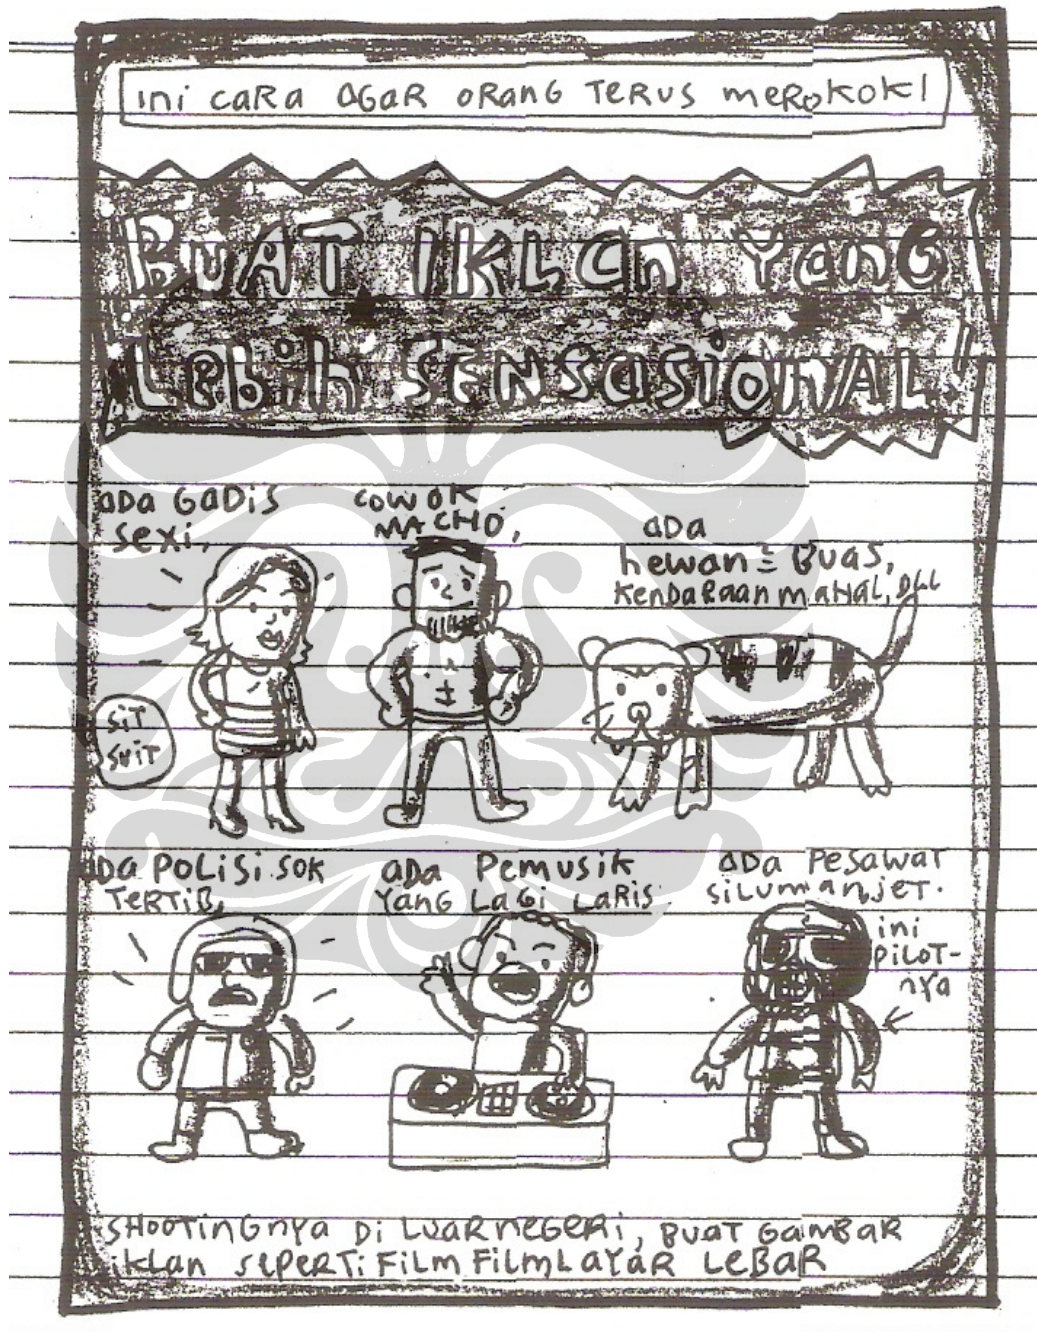 ini cara agar orang terus merokok!
Buat iklan yang
lebih sensasional!
ada gadis
sexi,
cowok
macho,
ada
hewan² buas,
kendaraan mahal, dll
sit
suit
ada polisi sok
tertib,
ada pemusik
yang lagi laris
ada pesawat
siluman jet.
ini
pilot-
nya
shootingnya di luar negeri, buat gambar
iklan seperti film film layar lebar